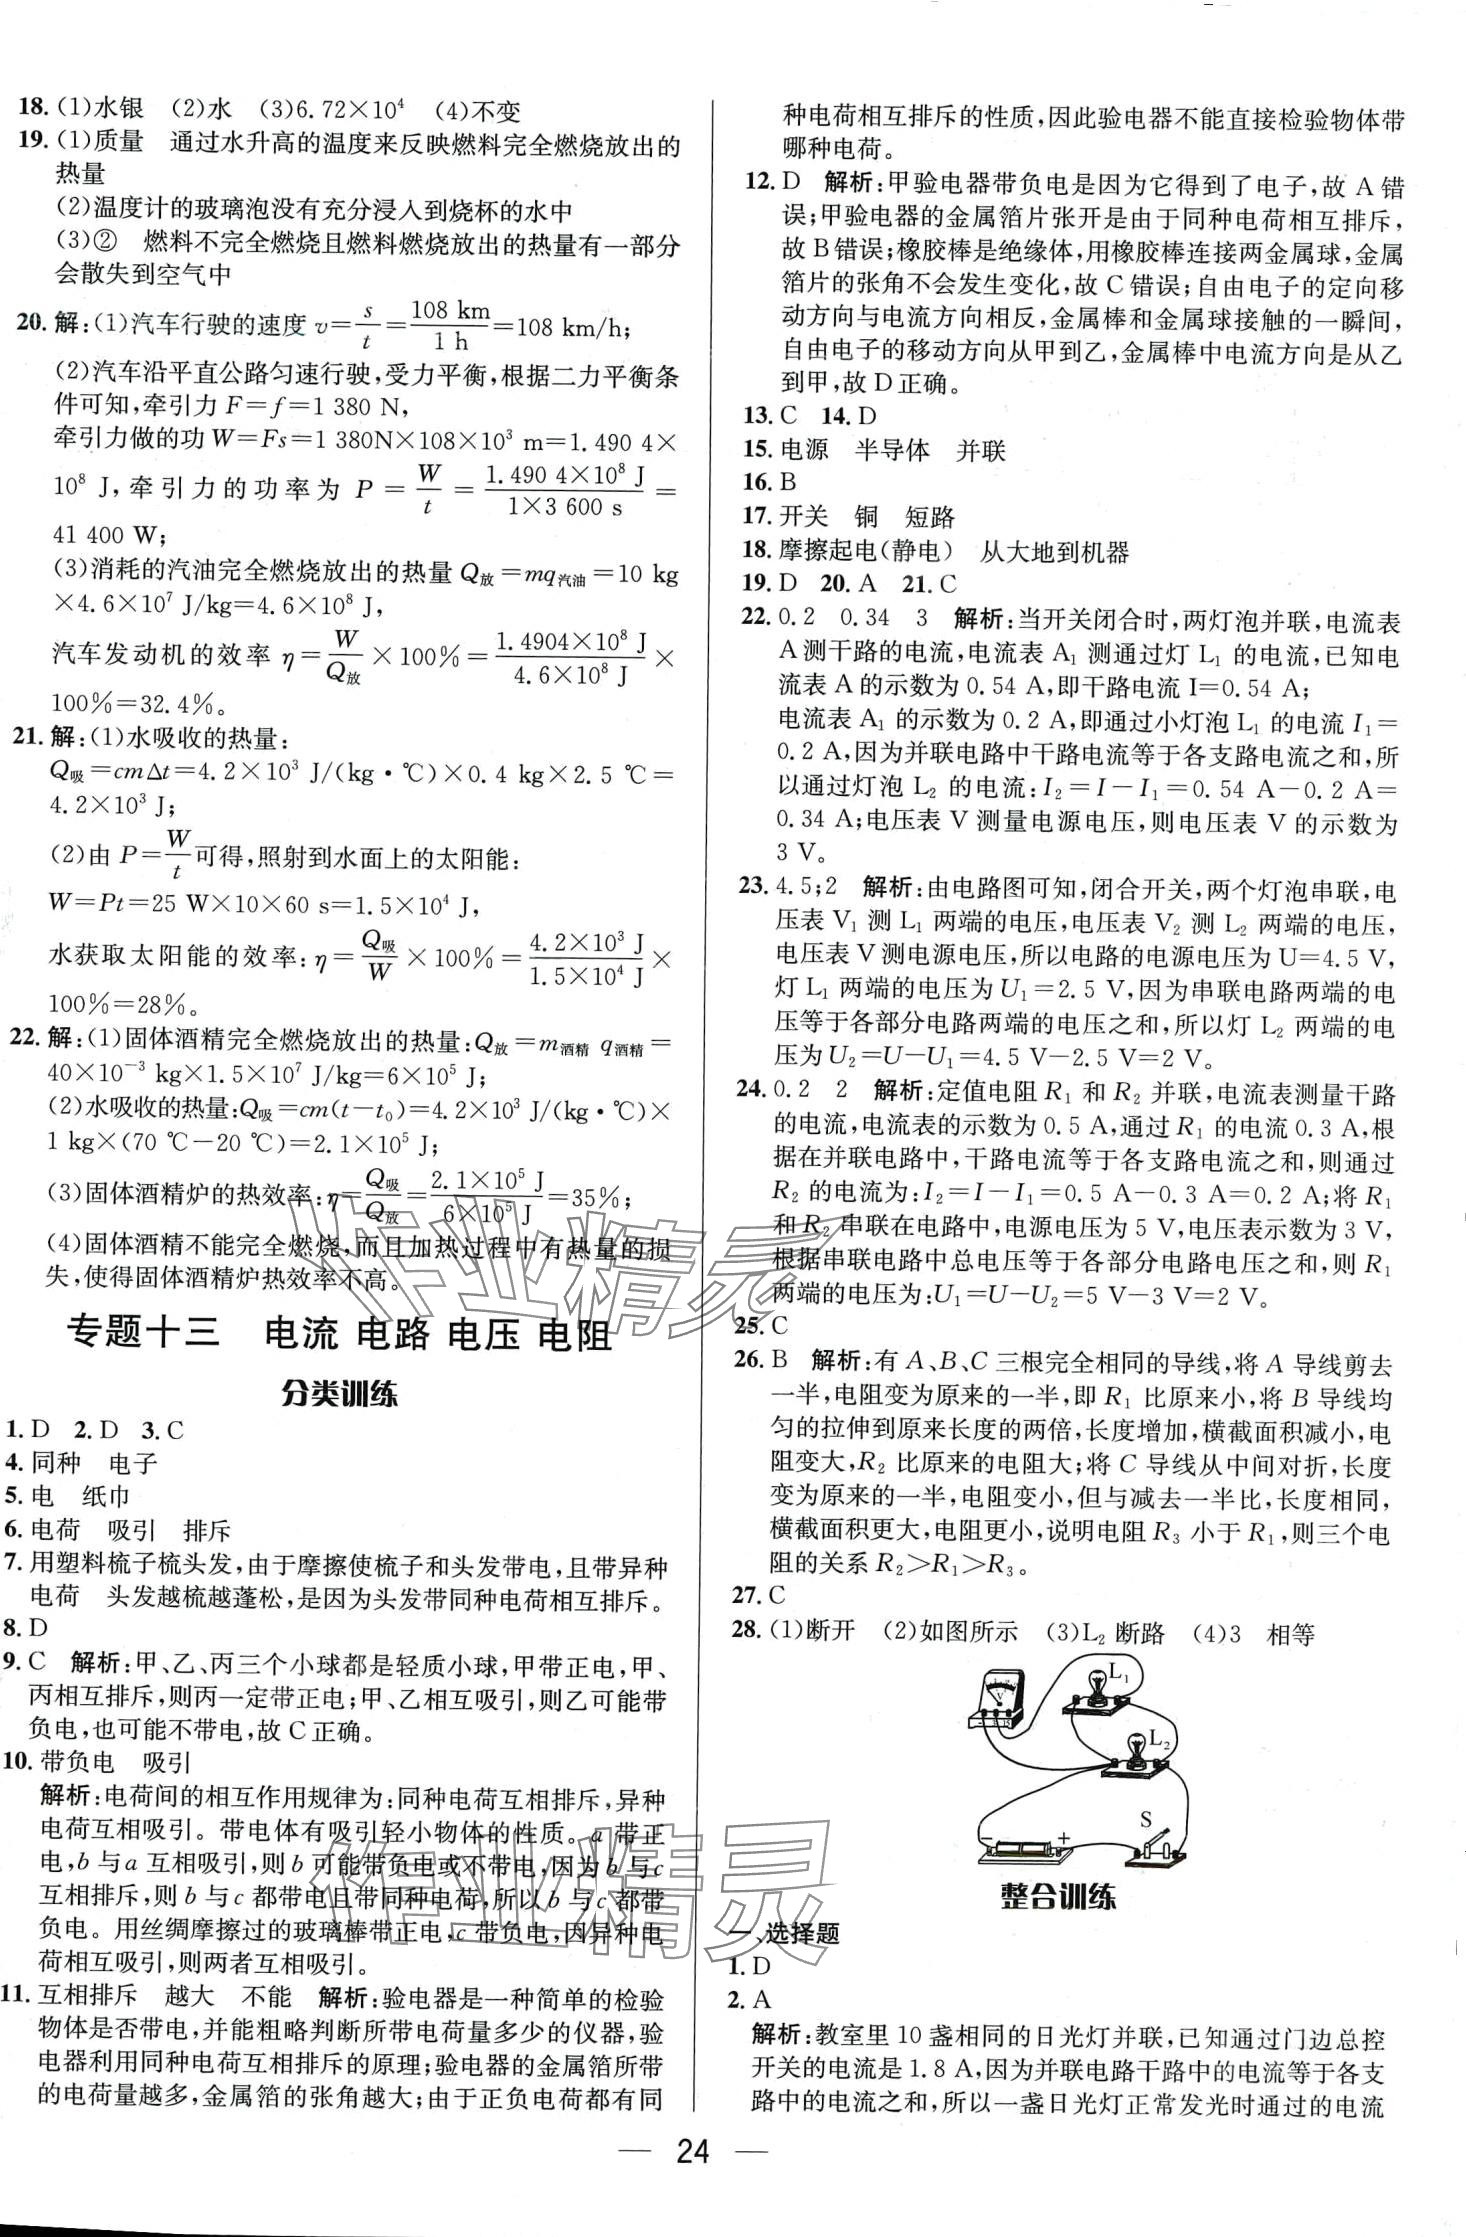 18. (1)水银　(2)水　(3)6.72×10⁴　(4)不变
19. (1)质量　通过水升高的温度来反映燃料完全燃烧放出的
热量
(2)温度计的玻璃泡没有充分浸入到烧杯的水中
(3)②　燃料不完全燃烧且燃料燃烧放出的热量有一部分
会散失到空气中
20. 解:(1)汽车行驶的速度 v=s/t=108 km/1 h=108 km/h;
(2)汽车沿平直公路匀速行驶,受力平衡,根据二力平衡条
件可知,牵引力 F=f=1 380 N,
牵引力做的功 W=Fs=1 380N×108×10³ m=1.490 4×
10⁸ J,牵引力的功率为 P=W/t=1.490 4×10⁸ J/1×3 600 s=
41 400 W;
(3)消耗的汽油完全燃烧放出的热量 Q放=mq汽油=10 kg
×4.6×10⁷ J/kg=4.6×10⁸ J,
汽车发动机的效率 η=W/Q放×100%=1.4904×10⁸ J/4.6×10⁸ J×
100%=32.4%。
21. 解:(1)水吸收的热量:
Q吸=cmΔt=4.2×10³ J/(kg·℃)×0.4 kg×2.5 ℃=
4.2×10³ J;
(2)由 P=W/t可得,照射到水面上的太阳能:
W=Pt=25 W×10×60 s=1.5×10⁴ J,
水获取太阳能的效率:η=Q吸/W×100%=4.2×10³ J/1.5×10⁴ J×
100%=28%。
22. 解:(1)固体酒精完全燃烧放出的热量:Q放=m酒精 q酒精=
40×10⁻³ kg×1.5×10⁷ J/kg=6×10⁵ J;
(2)水吸收的热量:Q吸=cm(t-t₀)=4.2×10³ J/(kg·℃)×
1 kg×(70 ℃-20 ℃)=2.1×10⁵ J;
(3)固体酒精炉的热效率:η=Q吸/Q放=2.1×10⁵ J/6×10⁵ J=35%;
(4)固体酒精不能完全燃烧,而且加热过程中有热量的损
失,使得固体酒精炉热效率不高。
专题十三　电流 电路 电压 电阻
分类训练
1. D　2. D　3. C
4. 同种　电子
5. 电　纸巾
6. 电荷　吸引　排斥
7. 用塑料梳子梳头发,由于摩擦使梳子和头发带电,且带异种
电荷　头发越梳越蓬松,是因为头发带同种电荷相互排斥。
8. D
9. C　解析:甲、乙、丙三个小球都是轻质小球,甲带正电,甲、
丙相互排斥,则丙一定带正电;甲、乙相互吸引,则乙可能带
负电,也可能不带电,故 C 正确。
10. 带负电　吸引
解析:电荷间的相互作用规律为:同种电荷互相排斥,异种
电荷互相吸引。带电体有吸引轻小物体的性质。a 带正
电,b 与 a 互相吸引,则 b 可能带负电或不带电,因为 b 与 c
互相排斥,则 b 与 c 都带电且带同种电荷,所以 b 与 c 都带
负电。用丝绸摩擦过的玻璃棒带正电,c 带负电,因异种电
荷相互吸引,则两者互相吸引。
11. 互相排斥　越大　不能　解析:验电器是一种简单的检验
物体是否带电,并能粗略判断所带电荷量多少的仪器,验
电器利用同种电荷互相排斥的原理;验电器的金属箔所带
的电荷量越多,金属箔的张角越大;由于正负电荷都有同
种电荷相互排斥的性质,因此验电器不能直接检验物体带
哪种电荷。
12. D　解析:甲验电器带负电是因为它得到了电子,故 A 错
误;甲验电器的金属箔片张开是由于同种电荷相互排斥,
故 B 错误;橡胶棒是绝缘体,用橡胶棒连接两金属球,金属
箔片的张角不会发生变化,故 C 错误;自由电子的定向移
动方向与电流方向相反,金属棒和金属球接触的一瞬间,
自由电子的移动方向从甲到乙,金属棒中电流方向是从乙
到甲,故 D 正确。
13. C　14. D
15. 电源　半导体　并联
16. B
17. 开关　铜　短路
18. 摩擦起电(静电)　从大地到机器
19. D　20. A　21. C
22. 0.2　0.34　3　解析:当开关闭合时,两灯泡并联,电流表
A 测干路的电流,电流表 A₁ 测通过灯 L₁ 的电流,已知电
流表 A 的示数为 0.54 A,即干路电流 I=0.54 A;
电流表 A₁ 的示数为 0.2 A,即通过小灯泡 L₁ 的电流 I₁=
0.2 A,因为并联电路中干路电流等于各支路电流之和,所
以通过灯泡 L₂ 的电流:I₂=I-I₁=0.54 A-0.2 A=
0.34 A;电压表 V 测量电源电压,则电压表 V 的示数为
3 V。
23. 4.5;2　解析:由电路图可知,闭合开关,两个灯泡串联,电
压表 V₁ 测 L₁ 两端的电压,电压表 V₂ 测 L₂ 两端的电压,
电压表 V 测电源电压,所以电路的电源电压为 U=4.5 V,
灯 L₁ 两端的电压为 U₁=2.5 V,因为串联电路两端的电
压等于各部分电路两端的电压之和,所以灯 L₂ 两端的电
压为 U₂=U-U₁=4.5 V-2.5 V=2 V。
24. 0.2　2　解析:定值电阻 R₁ 和 R₂ 并联,电流表测量干路
的电流,电流表的示数为 0.5 A,通过 R₁ 的电流 0.3 A,根
据在并联电路中,干路电流等于各支路电流之和,则通过
R₂ 的电流为:I₂=I-I₁=0.5 A-0.3 A=0.2 A;将 R₁
和 R₂ 串联在电路中,电源电压为 5 V,电压表示数为 3 V,
根据串联电路中总电压等于各部分电路电压之和,则 R₁
两端的电压为:U₁=U-U₂=5 V-3 V=2 V。
25. C
26. B　解析:有 A、B、C 三根完全相同的导线,将 A 导线剪去
一半,电阻变为原来的一半,即 R₁ 比原来小,将 B 导线均
匀的拉伸到原来长度的两倍,长度增加,横截面积减小,电
阻变大,R₂ 比原来的电阻大;将 C 导线从中间对折,长度
变为原来的一半,电阻变小,但与减去一半比,长度相同,
横截面积更大,电阻更小,说明电阻 R₃ 小于 R₁,则三个电
阻的关系 R₂>R₁>R₃。
27. C
28. (1)断开　(2)如图所示　(3)L₂ 断路　(4)3　相等
L₁
V
L₂
S
- +
整合训练
一、选择题
1. D
2. A
解析:教室里 10 盏相同的日光灯并联,已知通过门边总控
开关的电流是 1.8 A,因为并联电路干路中的电流等于各支
路中的电流之和,所以一盏日光灯正常发光时通过的电流
作业精灵
作业精灵
— 24 —